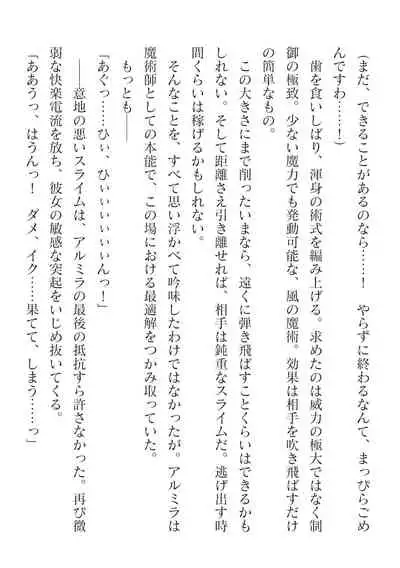 （まだ、できることがあるのなら……！　やらずに終わるなんて、まっぴらごめ
んですわ……！）
　歯を食いしばり、渾身の術式を編み上げる。求めたのは威力の極大ではなく制
御の極致。少ない魔力でも発動可能な、風の魔術。効果は相手を吹き飛ばすだけ
の簡単なもの。
　この大きさにまで削ったいまなら、遠くに弾き飛ばすことくらいはできるかも
しれない。そして距離さえ引き離せれば、相手は鈍重なスライムだ。逃げ出す時
間くらいは稼げるかもしれない。
　そんなことを、すべて思い浮かべて吟味したわけではなかったが。アルミラは
魔術師としての本能で、この場における最適解をつかみ取っていた。
　もっとも――
「あぐっ……ひぃ、ひぃぃぃぃぃんっ！」
　――意地の悪いスライムは、アルミラの最後の抵抗すら許さなかった。再び微
弱な快楽電流を放ち、彼女の敏感な突起をいじめ抜いてくる。
「ああうっ、はうんっ！　ダメ、イク……果てて、しまう……っ」